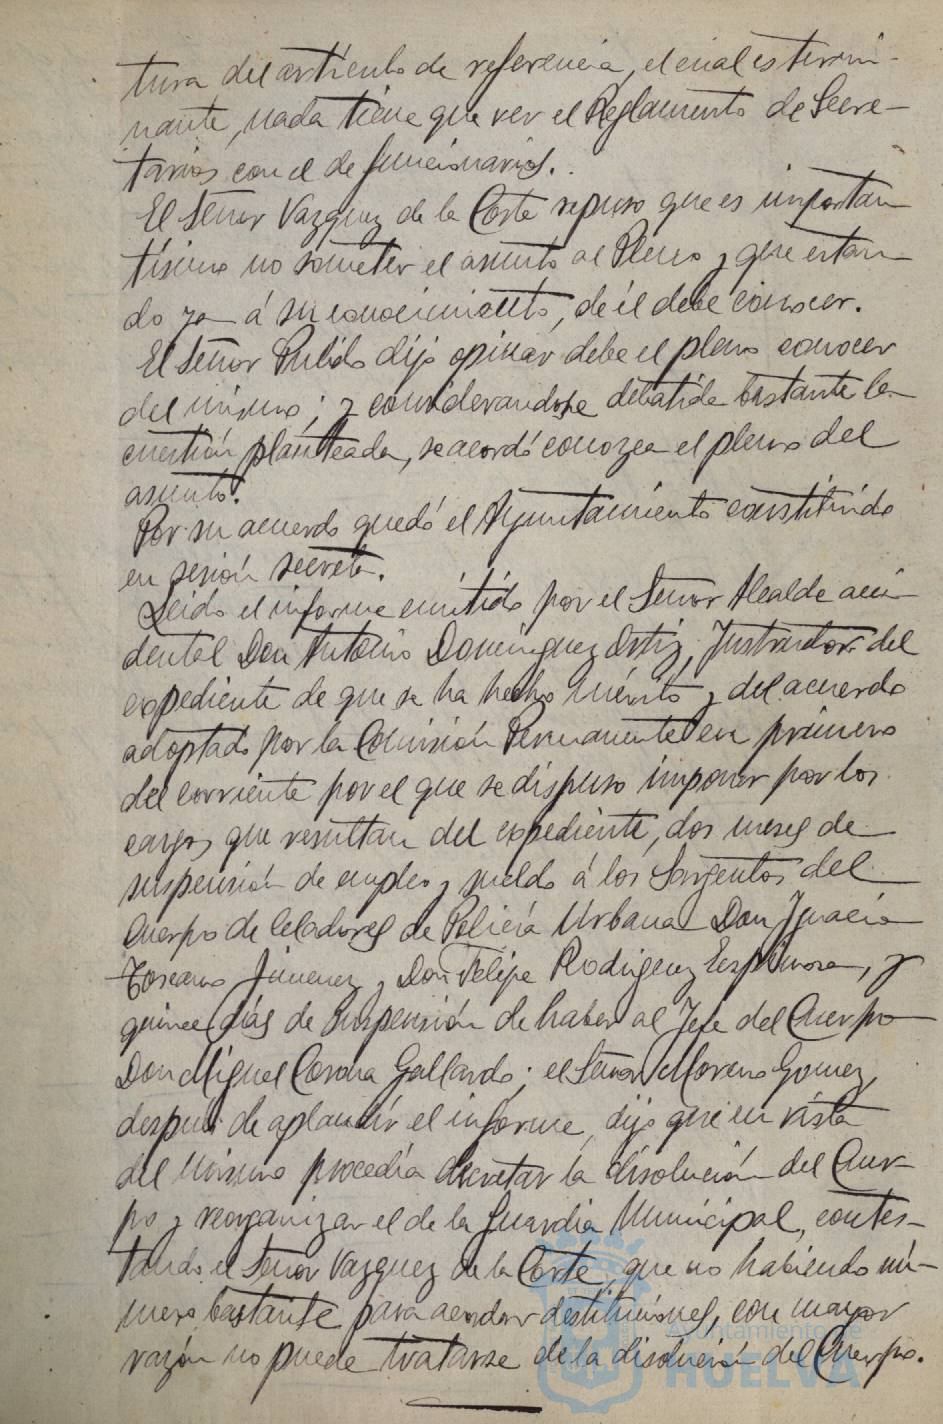 tura del artículo de referencia, el cual es termi-
nante, nada tiene que ver el Reglamento de Secre-
tarios con el de funcionarios.
El Señor Vazquez de la Corte repuso que es importan-
tísimo no someter el asunto al Pleno y que estan-
do ya á su conocimiento, de él debe conocer.
El Señor Pulido dijo opinar debe el pleno conocer
del mismo; y considerandose debatida bastante la
cuestión planteada, se acordó conozca el pleno del
asunto.
Por su acuerdo quedó el Ayuntamiento constituido
en sesión secreta.
Leido el informe emitido por el Señor Alcalde acci-
dental Don Antonio Dominguez Ortiz, Instructor del
expediente de que se ha hecho mérito y del acuerdo
adoptado por la Comisión Permanente en primero
del corriente por el que se dispuso imponer por los
cargos que resultan del expediente, dos meses de
suspensión de empleo y sueldo á los Sargentos del
Cuerpo de Celadores de Policía Urbana Don Ignacio
Toscano Jimenez y Don Felipe Rodriguez Espinosa, y
quince días de suspensión de haber al Jefe del Cuerpo
Don Miguel Gallardo; el Señor Moreno Gomez,
después de aplaudir el informe, dijo que en vista
del mismo procedía decretar la disolución del Cuer-
po y reorganizar el de la Guardia Municipal, contes-
tando el Señor Vazquez de la Corte, que no habiendo nú-
mero bastante para acordar destituciones, con mayor
razón no puede tratarse de la disolución del Cuerpo.
Ayuntamiento de
HUELVA